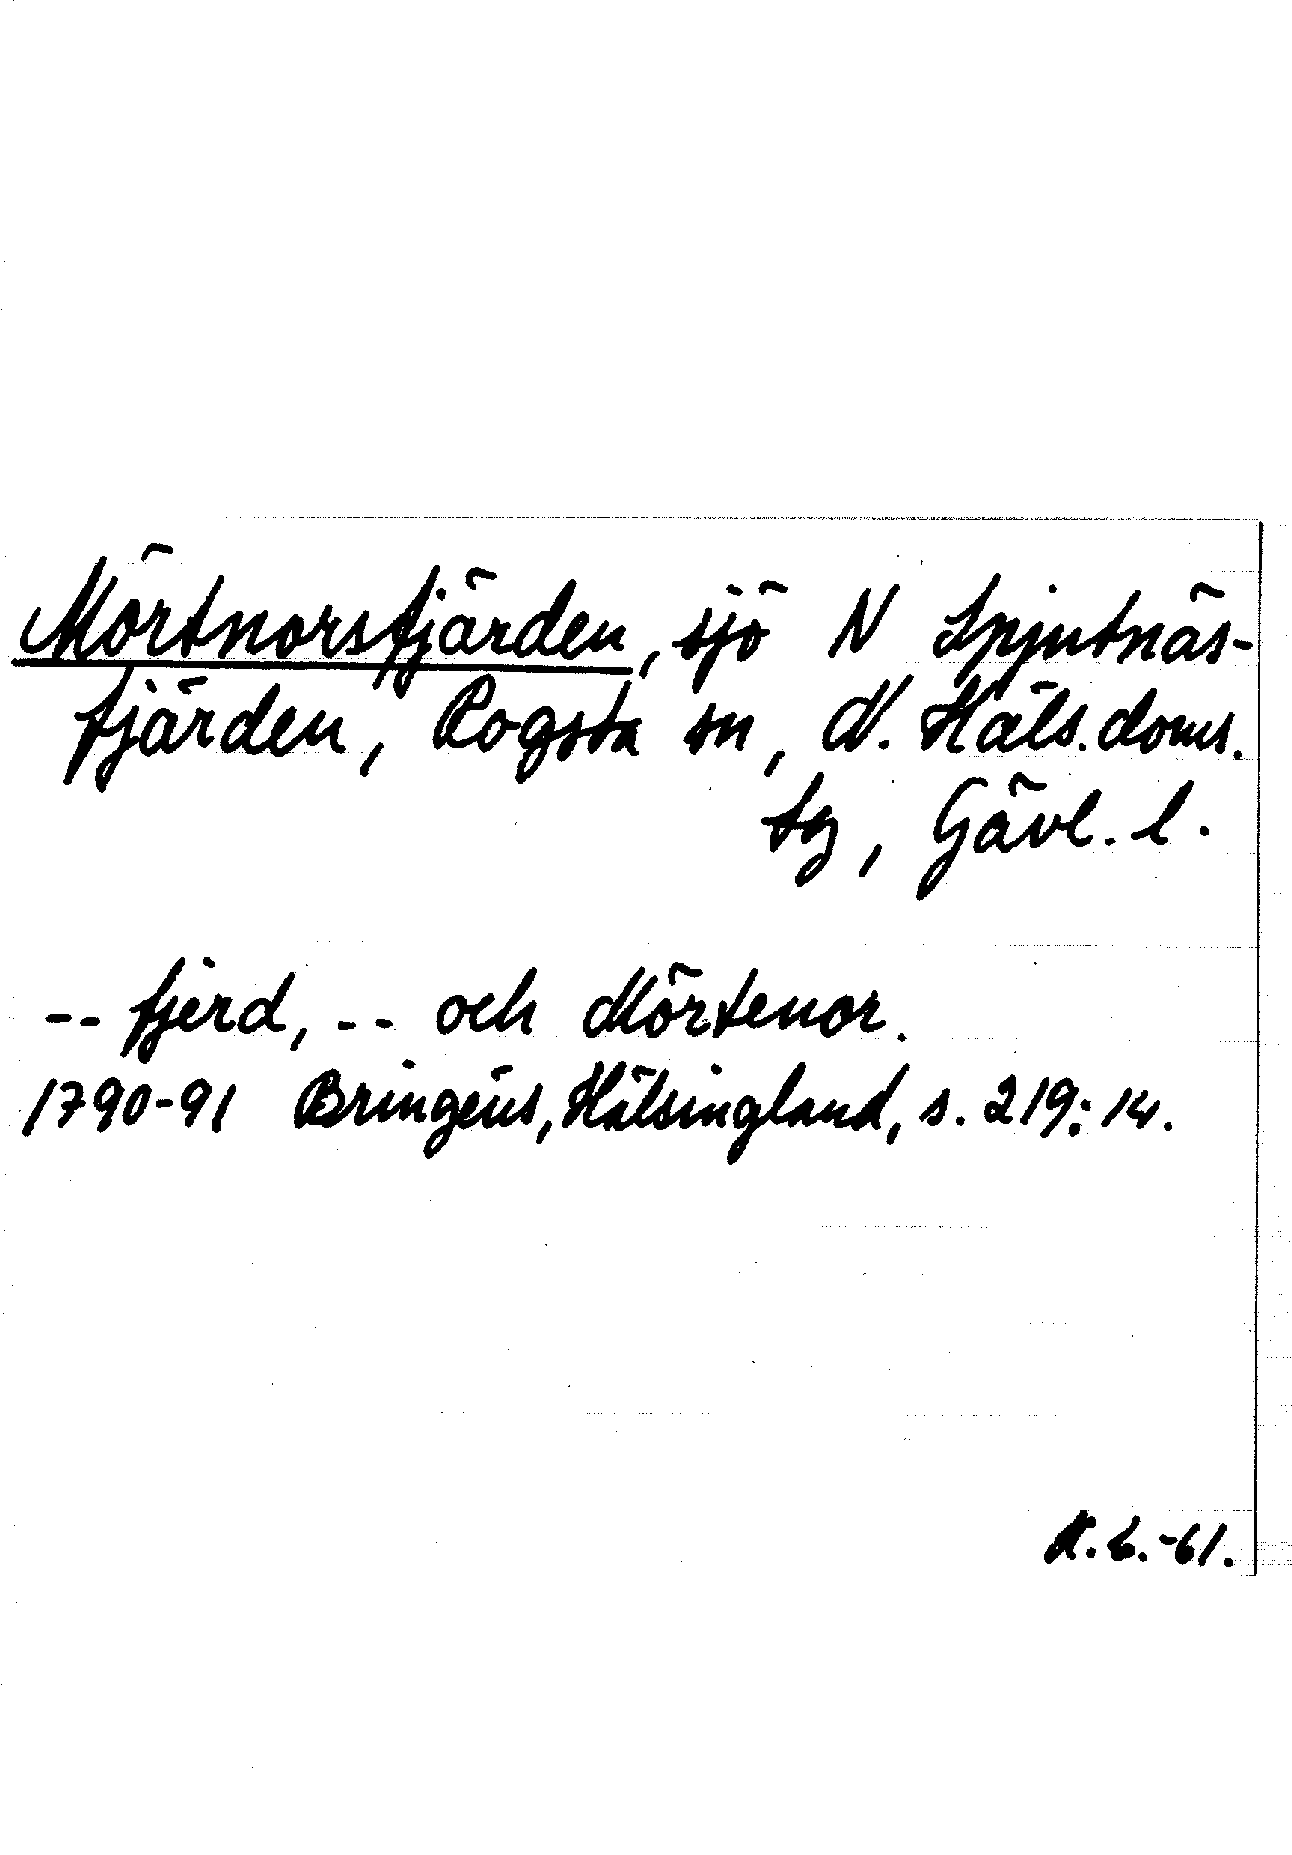 Mörtnorsfjärden, sjö N Spjutnäs-
fjärden, Rogsta sn, N. Häls. doms.
sg, Gävl. l.
-- fjerd, -- och Mörtenor.
1790-91 Bringéus, Hälsingland, s. 219:14.
-61.